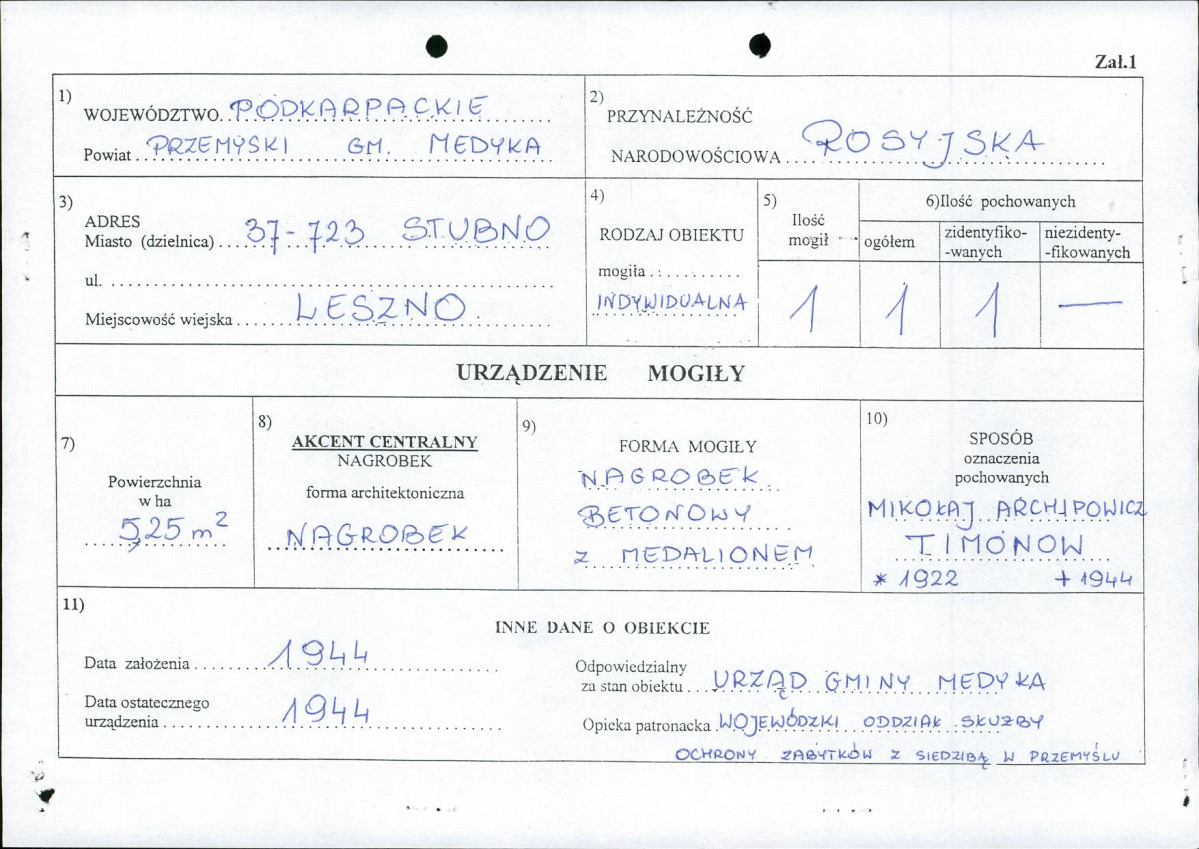 Zał.1
1)
WOJEWÓDZTWO. PODKARPACKIE
Powiat PRZEMYSKI GM. MEDYKA
2)
PRZYNALEŻNOŚĆ
NARODOWOŚCIOWA ROSYJSKA
3)
ADRES
Miasto (dzielnica) 37-723 STUBNO
ul.
Miejscowość wiejska LESZNO
4)
RODZAJ OBIEKTU
mogiła
INDYWIDUALNA
5)
Ilość
mogił
1
6)Ilość pochowanych
ogółem
1
zidentyfiko-
-wanych
1
niezidenty-
-fikowanych
—
URZĄDZENIE MOGIŁY
7)
Powierzchnia
w ha
5,25 m²
8)
AKCENT CENTRALNY
NAGROBEK
forma architektoniczna
NAGROBEK
9)
FORMA MOGIŁY
NAGROBEK
BETONOWY
Z MEDALIONEM
10)
SPOSÓB
oznaczenia
pochowanych
MIKOŁAJ ARCHIPOWICZ
TIMONOW
* 1922 + 1944
11)
INNE DANE O OBIEKCIE
Data założenia 1944
Data ostatecznego
urządzenia 1944
Odpowiedzialny
za stan obiektu URZĄD GMINY MEDYKA
Opieka patronacka WOJEWÓDZKI ODDZIAŁ SŁUŻBY
OCHRONY ZABYTKÓW Z SIEDZIBĄ W PRZEMYŚLU